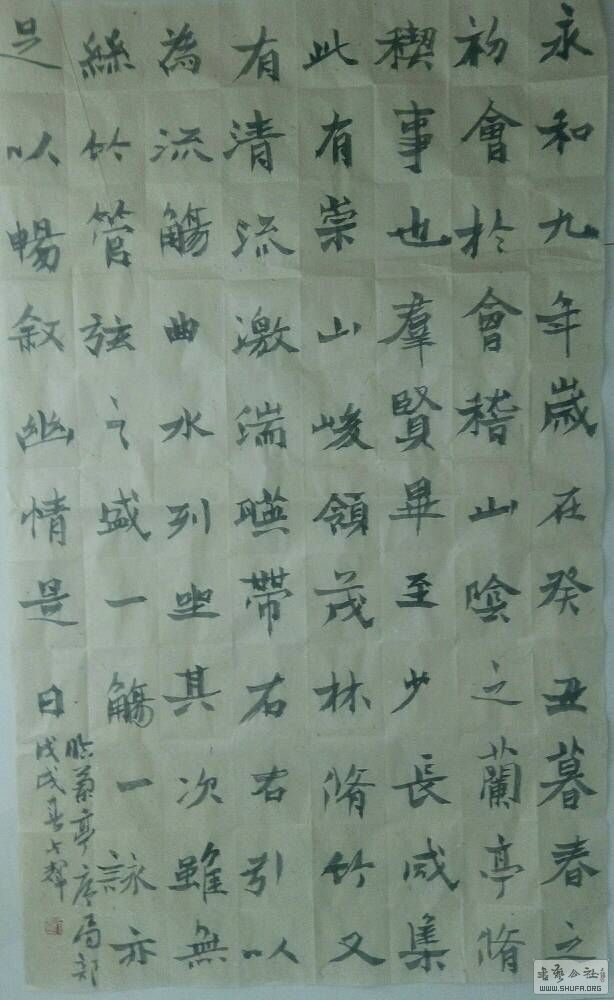 永和九年歲在癸丑暮春之
初會於會稽山陰之蘭亭脩
稧事也羣賢畢至少長咸集
此有崇山峻領茂林脩竹又
有清流激湍暎帶左右引以
為流觴曲水列坐其次雖無
絲竹管弦之盛一觴一詠亦
足以暢叙幽情是日
臨蘭亭序局部
戊戌春
书艺公社
WWW.SHUFA.ORG